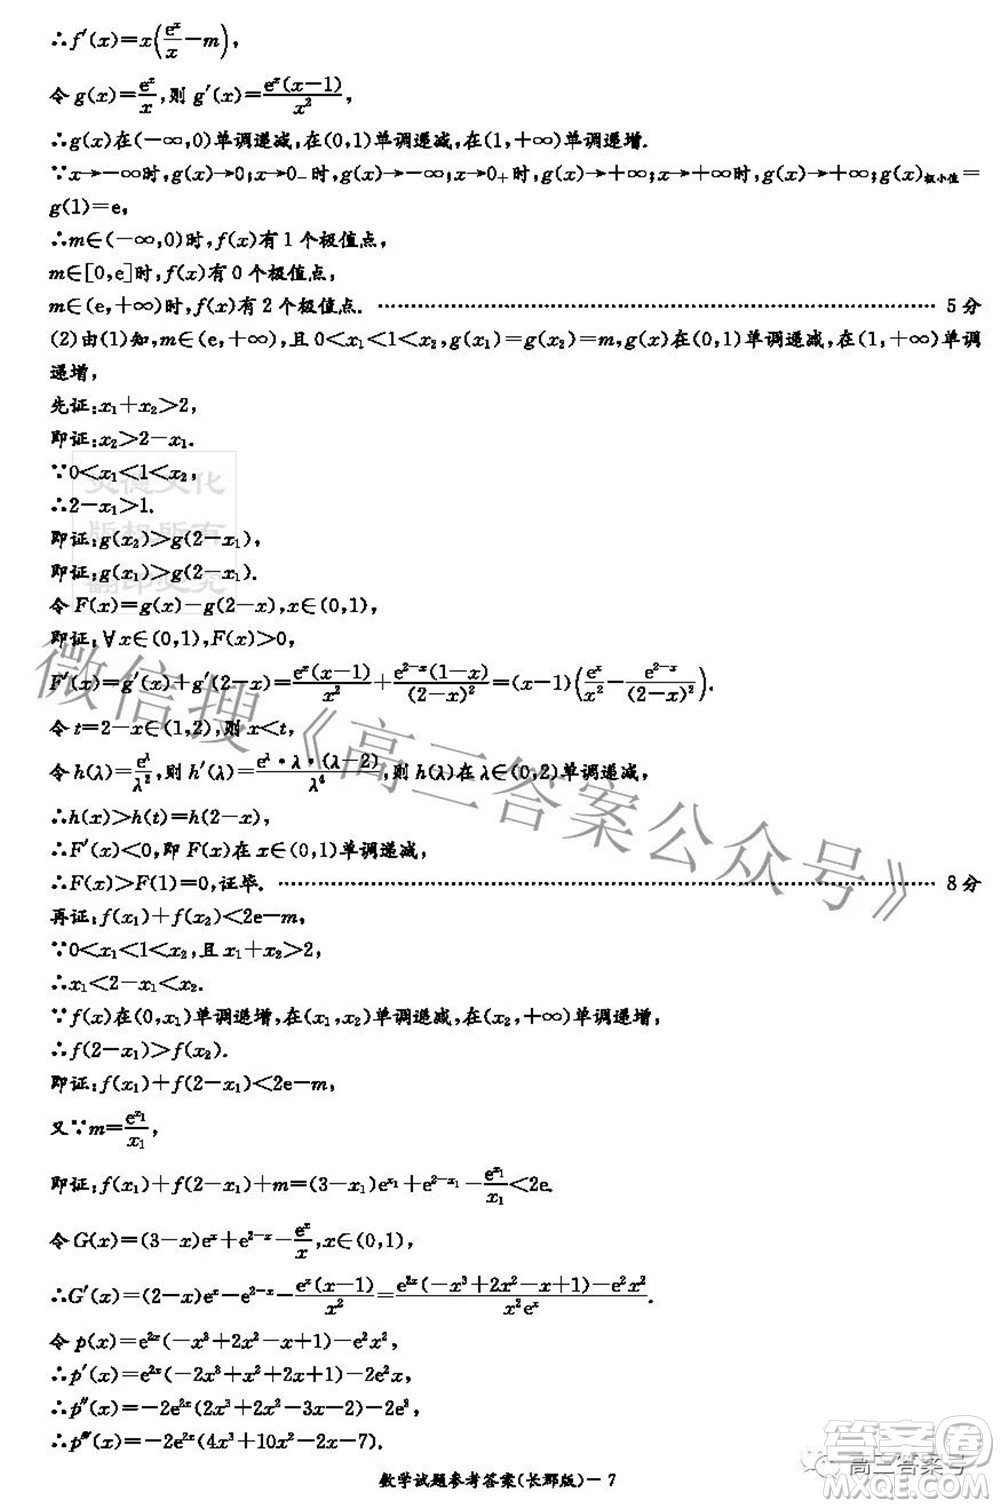 ∴f′(x)=x(eˣ/x−m),
令 g(x)=eˣ/x,则 g′(x)=eˣ(x−1)/x²,
∴g(x)在(−∞,0)单调递减,在(0,1)单调递减,在(1,+∞)单调递增.
∵x→−∞时,g(x)→0;x→0₋时,g(x)→−∞;x→0₊时,g(x)→+∞;x→+∞时,g(x)→+∞;g(x)极小值=
g(1)=e,
∴m∈(−∞,0)时,f(x)有1个极值点,
m∈[0,e]时,f(x)有0个极值点,
m∈(e,+∞)时,f(x)有2个极值点. ………… 5分
(2)由(1)知,m∈(e,+∞),且0<x₁<1<x₂,g(x₁)=g(x₂)=m,g(x)在(0,1)单调递减,在(1,+∞)单调
递增,
先证:x₁+x₂>2,
即证:x₂>2−x₁.
∵0<x₁<1<x₂,
∴2−x₁>1.
即证:g(x₂)>g(2−x₁),
即证:g(x₁)>g(2−x₁).
令 F(x)=g(x)−g(2−x),x∈(0,1),
即证:∀x∈(0,1),F(x)>0,
F′(x)=g′(x)+g′(2−x)=eˣ(x−1)/x²+e²⁻ˣ(1−x)/(2−x)²=(x−1)(eˣ/x²−e²⁻ˣ/(2−x)²).
令 t=2−x∈(1,2),则 x<t,
令 h(λ)=e^λ/λ²,则 h′(λ)=e^λ·λ·(λ−2)/λ⁴,则 h(λ)在λ∈(0,2)单调递减,
∴h(x)>h(t)=h(2−x),
∴F′(x)<0,即 F(x)在 x∈(0,1)单调递减,
∴F(x)>F(1)=0,证毕. ………… 8分
再证:f(x₁)+f(x₂)<2e−m,
∵0<x₁<1<x₂,且 x₁+x₂>2,
∴x₁<2−x₁<x₂.
∵f(x)在(0,x₁)单调递增,在(x₁,x₂)单调递减,在(x₂,+∞)单调递增,
∴f(2−x₁)>f(x₂).
即证:f(x₁)+f(2−x₁)<2e−m,
又∵m=e^x₁/x₁,
即证:f(x₁)+f(2−x₁)+m=(3−x₁)e^x₁+e^(2−x₁)−e^x₁/x₁<2e.
令 G(x)=(3−x)eˣ+e²⁻ˣ−eˣ/x,x∈(0,1),
∴G′(x)=(2−x)eˣ−e²⁻ˣ−eˣ(x−1)/x²=(e²ˣ(−x³+2x²−x+1)−e²x²)/(x²eˣ).
令 p(x)=e²ˣ(−x³+2x²−x+1)−e²x²,
∴p′(x)=e²ˣ(−2x³+x²+2x+1)−2e²x,
∴p″(x)=−2e²ˣ(2x³+2x²−3x−2)−2e²,
∴p‴(x)=−2e²ˣ(4x³+10x²−2x−7).
数学试题参考答案(长郡版)−7
微信搜《高三答案公众号》
英德文化
版权所有
翻印必究
高三答案号
答案圈
MXQE.COM